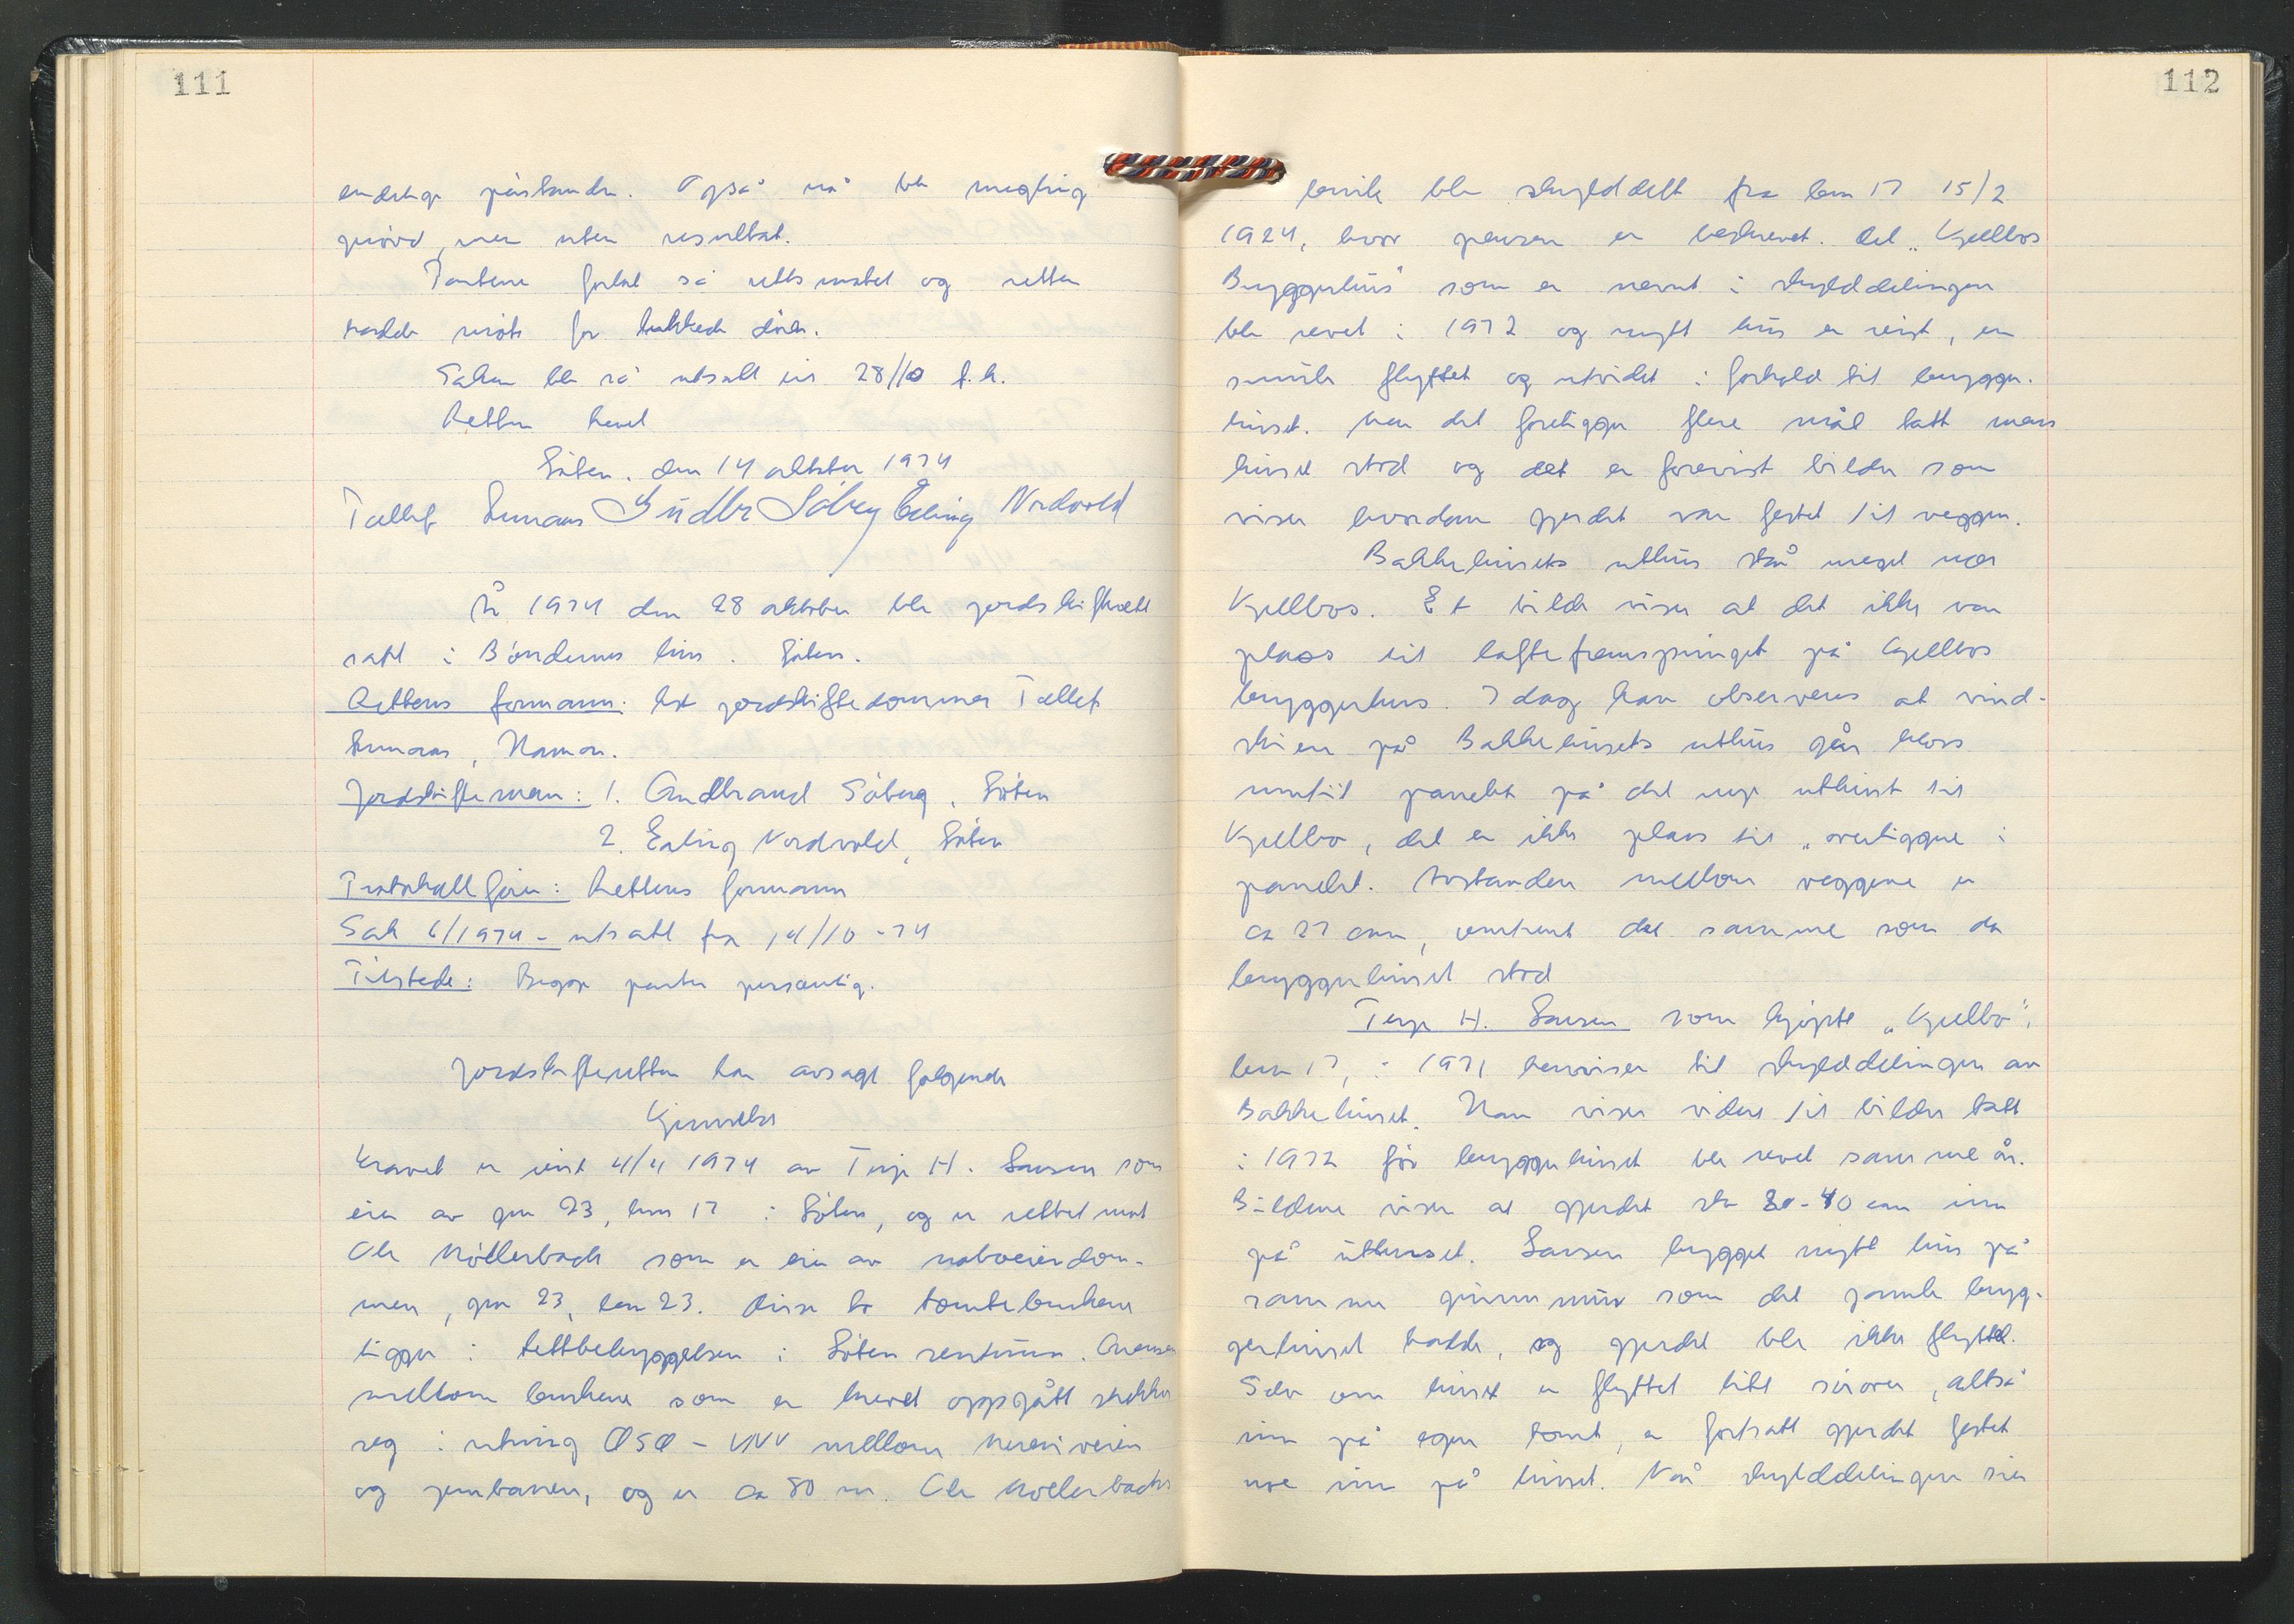 111
endelige påstander. Også nå ble megling
prövd, men uten resultat.
Partene forlot så rettsmøtet og retten
hadde møte for lukkede dörer.
Saken ble så utsatt til 28/10 f.k.
Retten hevet
Löten, den 14 oktober 1974
Tollef Gudbr Söberg Erling Nordvold
År 1974 den 28 oktober ble jordskifterett
satt i Böndernes hus. Löten.
Rettens formann: jordskiftedommer Tollef
, Hamar.
Jordskiftemenn: 1. Gudbrand Söberg, Löten
2. Erling Nordvold, Löten
Protokollförer: Rettens formann
Sak 6/1974 - utsatt fra 14/10-74
Tilstede: Begge parter personlig.
Jordskifteretten har avsagt følgende
Kjennelse
Kravet er reist 4/4 1974 av Terje H. Larsen som
eier av gnr 23, bnr 17 i Löten, og er rettet mot
Ole Möllerback som er eier av naboeiendom-
men, gnr 23, bnr 23. Disse to tomtebrukene
ligger i tettbebyggelsen i Löten sentrum. Grensen
mellom brukene som er krevet oppgått strekker
seg i retning ØSØ - VNV mellom veien
og jernbanen, og er ca 80 m. Ole Mollerbacks
112
bruk ble skylddelt fra bnr 17 15/2
1924, hvor grensen er beskrevet. Det „Kjellbos
Byggerhus" som er nevnt i skylddelingen
ble revet i 1972 og nytt hus er reist, en
smule flyttet og utvidet i forhold til brygger-
huset. Men det foreligger flere mål tatt mens
huset stod og det er forevist bilder som
viser hvordan gjerdet var festet til veggen.
Bakkehusets uthus står meget nær
Kjellbos. Et bilde viser at det ikke var
plass til laftefremspringet på Kjellbos
bryggerhus. I dag kan observeres at vind-
skien på Bakkehusets uthus går kloss
inntil panelet på det nye uthuset til
Kjellbo, det er ikke plass til „overliggere i
panelet. Avstanden mellom veggene er
ca 27 cm, omtrent det samme som da
bryggerhuset stod
Terje H. Larsen som kjöpte „Kjellbo",
bnr 17, i 1971 henviser til skylddelingen av
Bakkehuset. Han viser videre til bilder tatt
i 1972 för bryggerhuset ble revet samme år.
Bildene viser at gjerdet sto 30-40 cm inn
på uthuset. Larsen bygget nytt hus på
samme grunnmur som det gamle bryg-
gerhuset hadde, og gjerdet ble ikke flyttet.
Selv om huset er flyttet litt sörover, altså
inn på egen tomt, er fortsatt gjerdet festet
noe inn på huset. Når skylddelingen sier